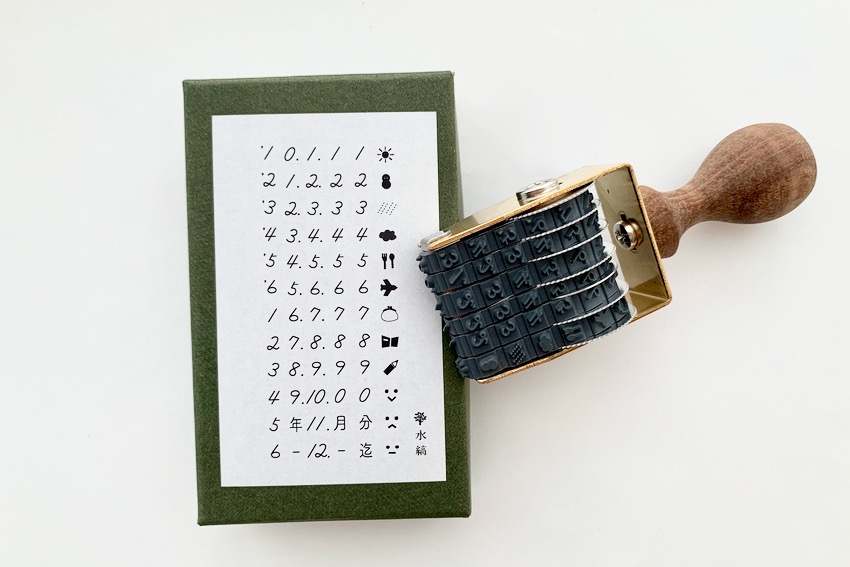 '1 0. 1. 1 1
'2 1. 2. 2 2
'3 2. 3. 3 3
'4 3. 4. 4 4
'5 4. 5. 5 5
'6 5. 6. 6 6
1 6. 7. 7 7
2 7. 8. 8 8
3 8. 9. 9 9
4 9. 10. 0 0
5 年 11. 月 分
6 - 12. - 迄
水縞